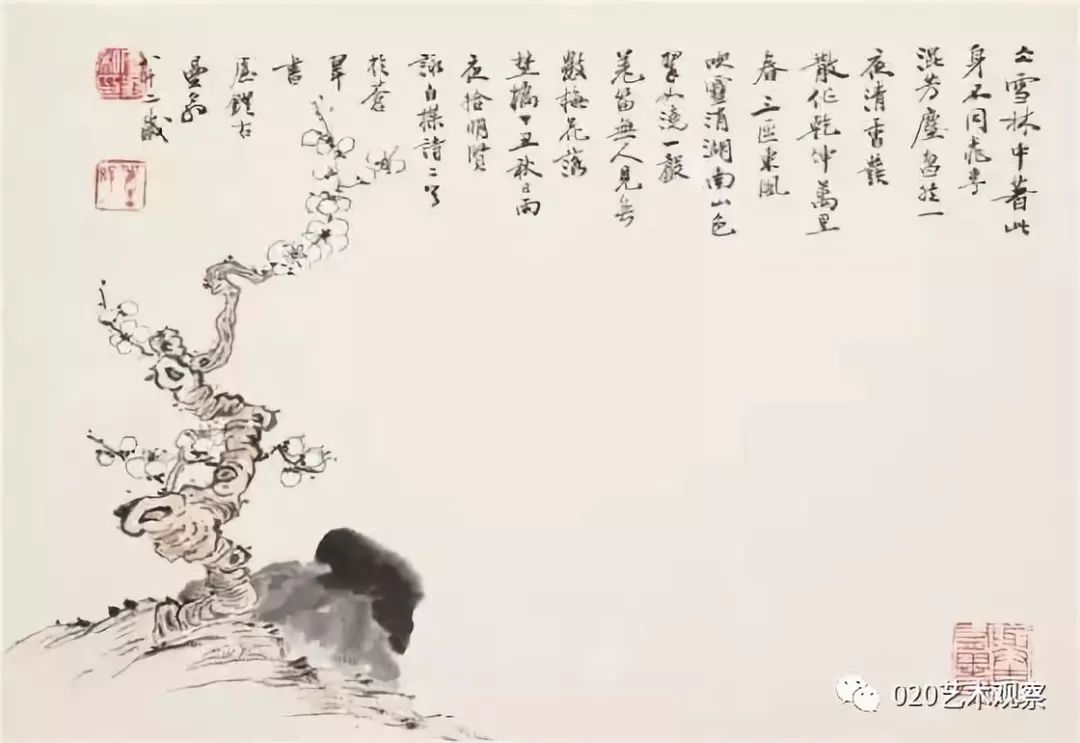 仌雪林中著此
身不同桃李
混芳塵忽然一
夜清香發
散作乾坤萬里
春三東風
吹雪消湖南山色
翠如澆一聲
羌笛無人見無
數梅花落
埜橋丁丑秋日雨
夜拾明賢
詠白楳詩二首
於蒼
翠
書
屋鐙右
曼翁
八十二歲
020艺术观察